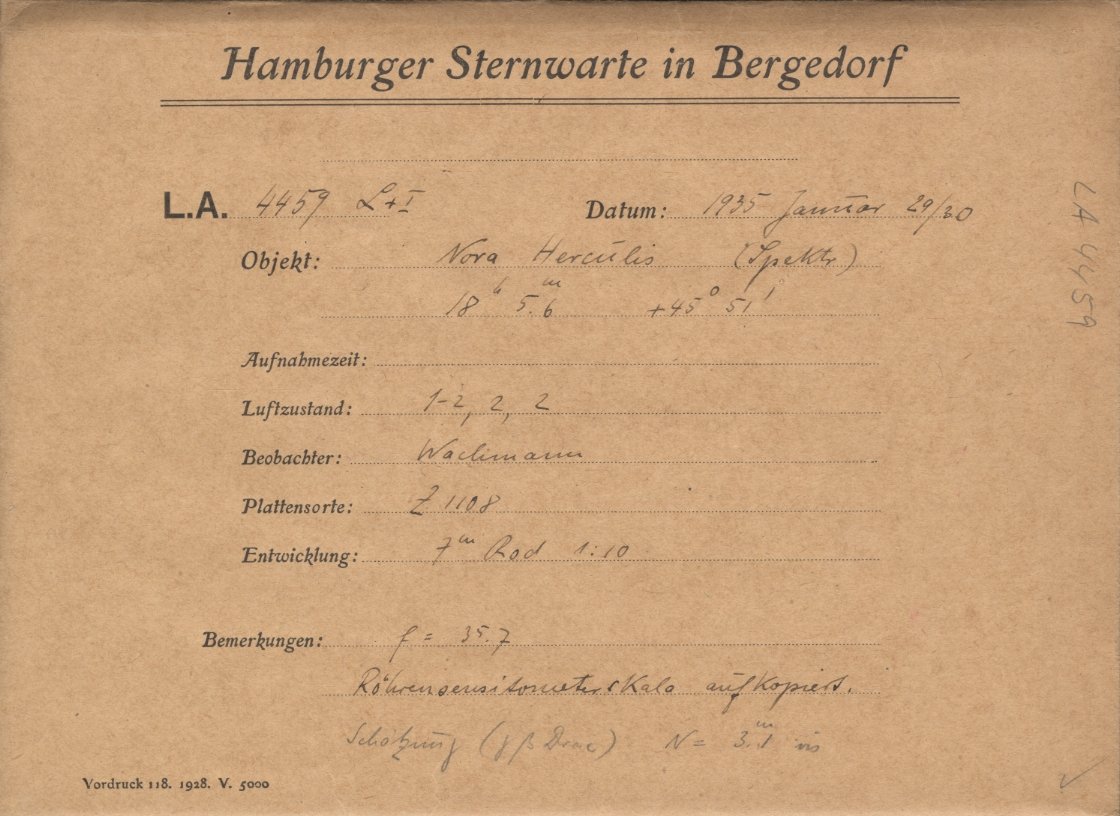 Hamburger Sternwarte in Bergedorf
L.A. 4459 L+I Datum: 1935 Januar 29/30
Objekt: Nova Herculis (Spektr)
18h 5.m6 +45° 51'
Aufnahmezeit:
Luftzustand: 1-2, 2, 2
Beobachter: Wachmann
Plattensorte: Z 1108
Entwicklung: 7m Rod 1:10
Bemerkungen: f = 35.7
Röhrensensitometerskala aufkopiert.
Schätzung (γ β Drac) N = 3.m1 vis
Vordruck 118. 1928. V. 5000
LA 4459